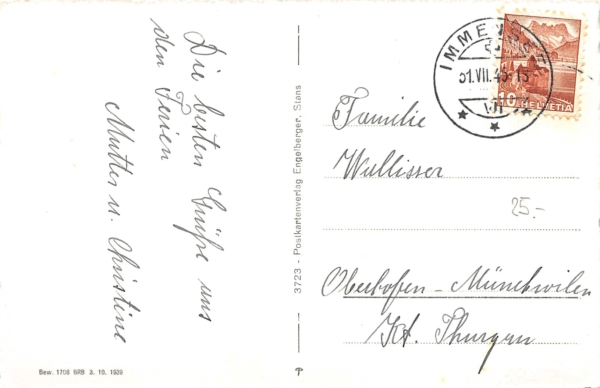 Die besten Grüße aus
den Ferien
Mutter u. Christine
Bew. 1708 BRB 3. 10. 1939
3723 - Postkartenverlag Engelberger, Stans
IMMENSEE
31.VII.45-15
10 HELVETIA
Familie
Wullisser
25.-
Oberhofen - Münchwilen
Kt. Thurgau